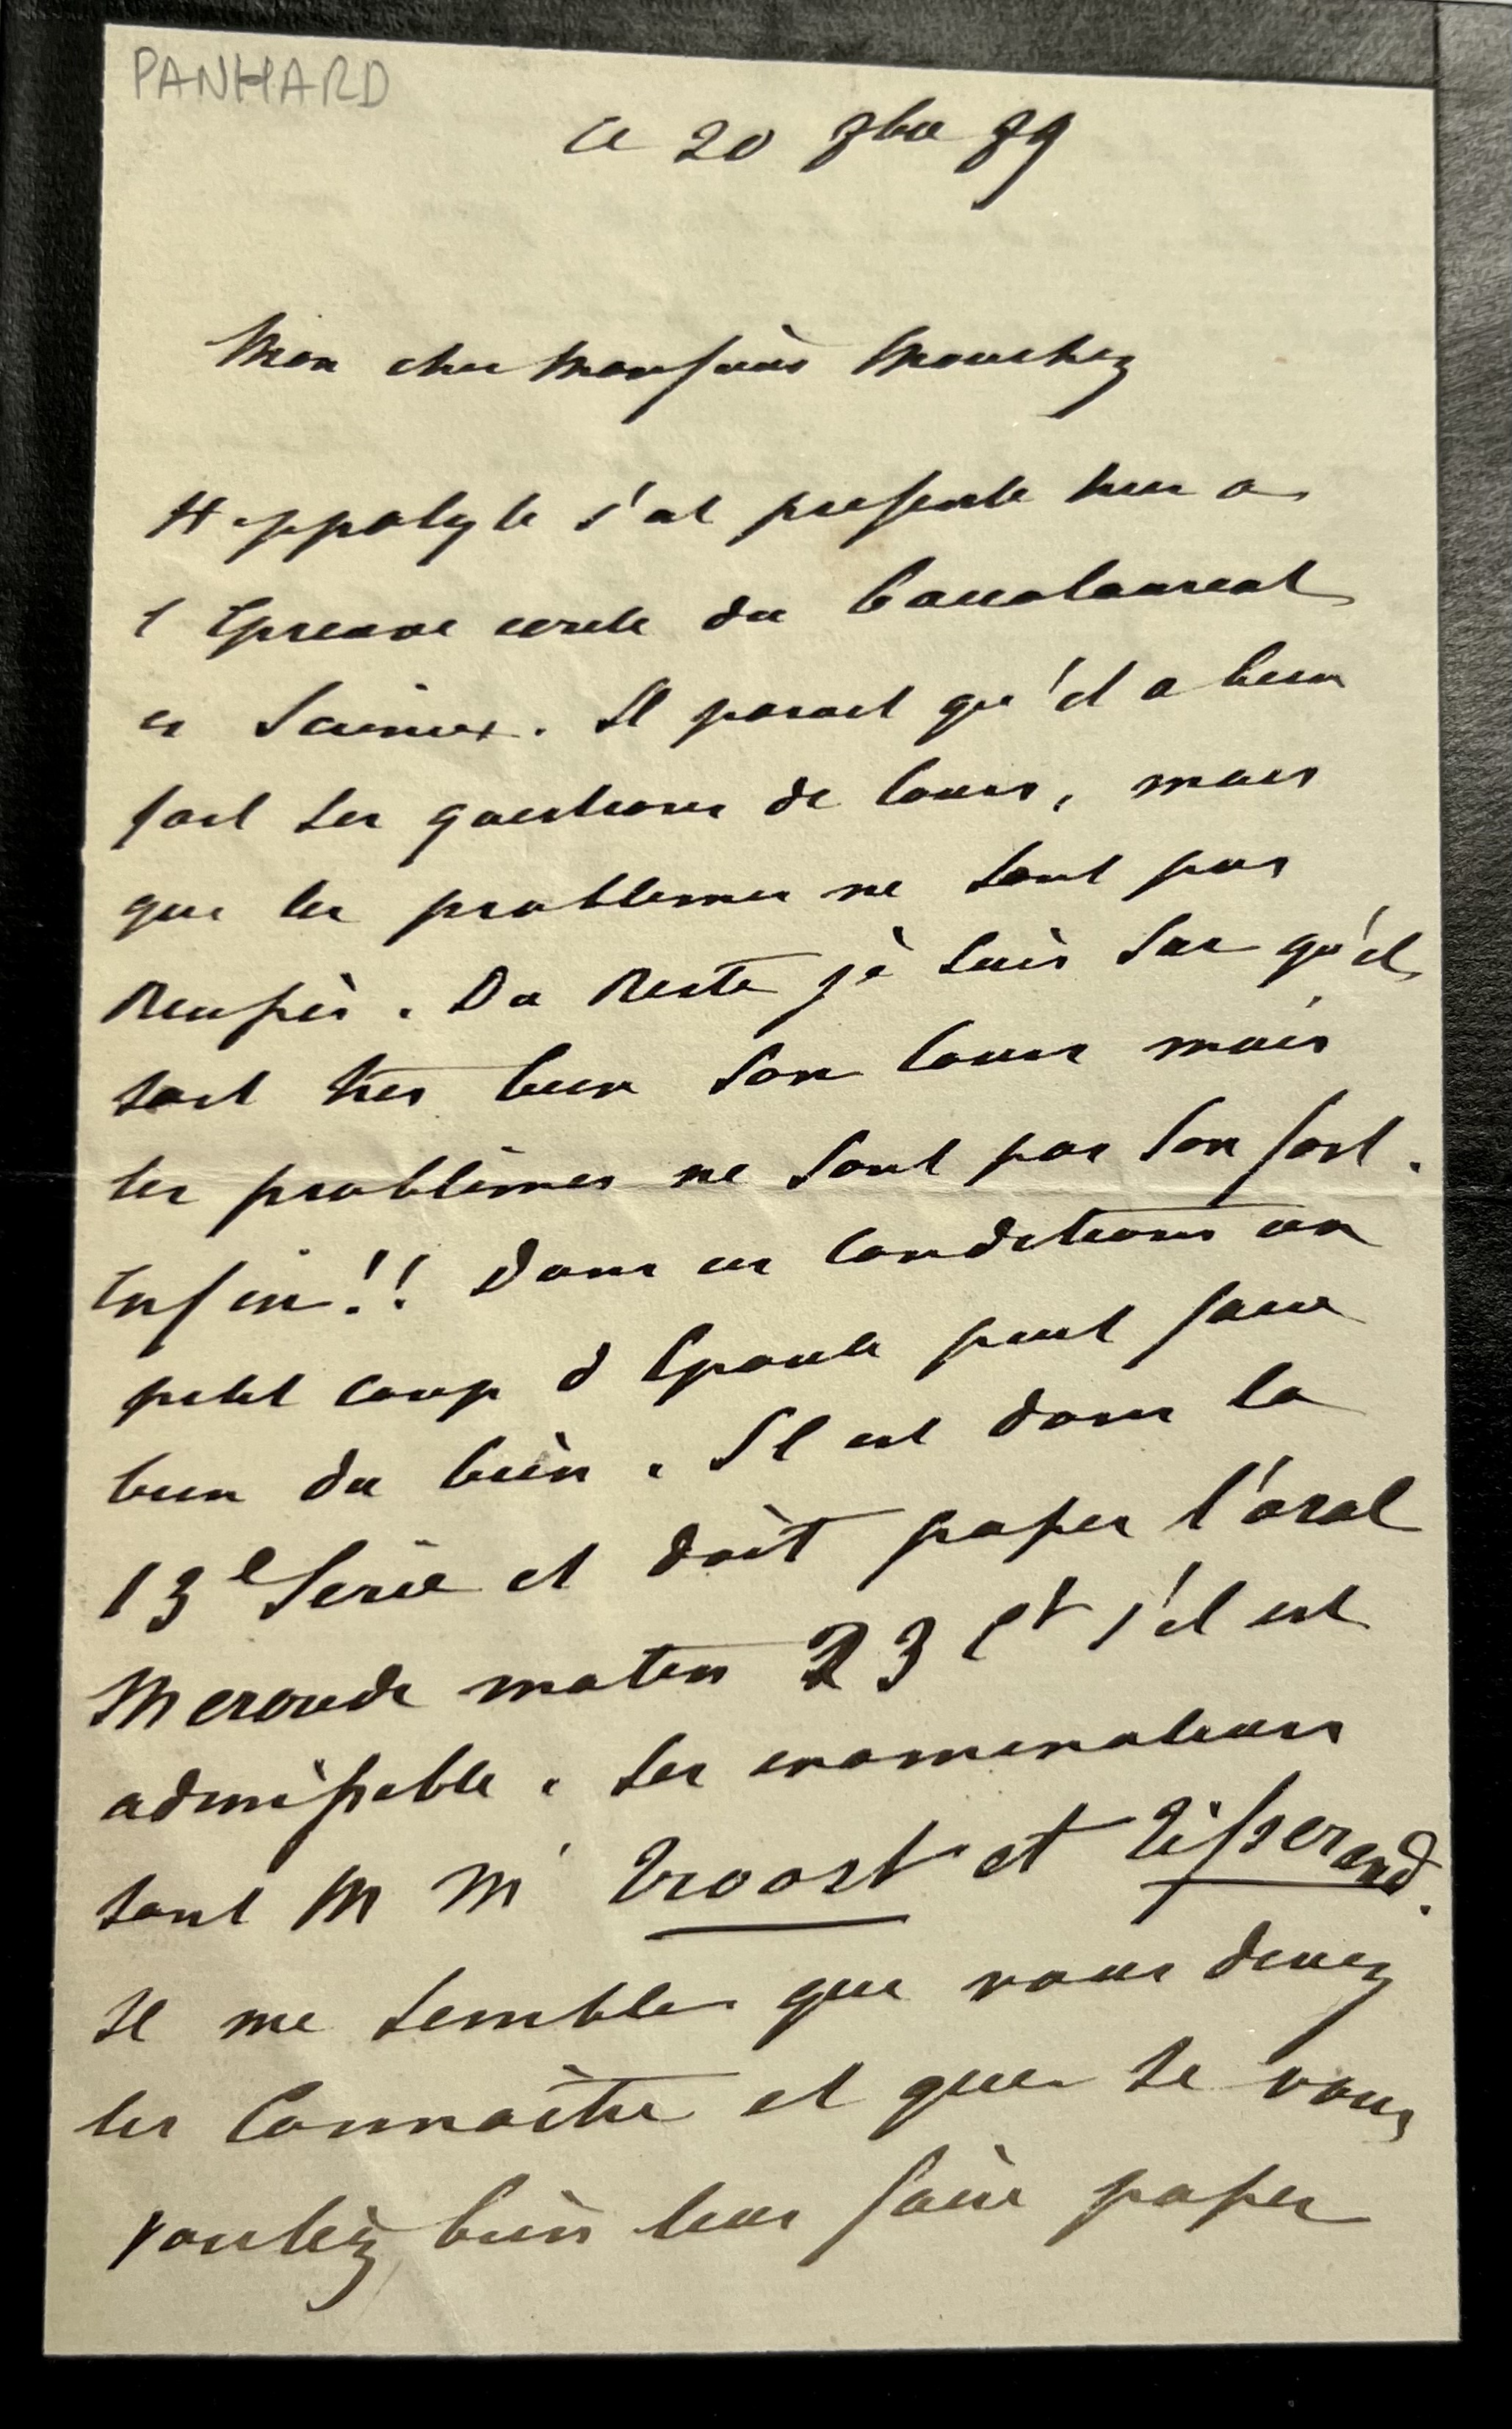 PANHARD
Ce 20 8bre 89
Mon cher Monsieur Mouchez
Hippolyte s'est presente hier a
l Epreuve ecrite du Baccalaureat
es Sciences. Il parait qu'il a bien
fait les questions de Cours, mais
que les problemes ne sont pas
Reussis. Du Reste je suis sur qu'il
sait tres bien son Cours mais
les problèmes ne sont pas son fort.
Enfin!! Dans ces Conditions un
petit coup d Epaule peut faire
bien du bien. Il est dans la
13e Serie et doit passer l'oral
Mercredi matin 23 Ct s'il est
admissible. Les examinateurs
sont M M Troost et Tisserand.
Il me semble que vous devez
les Connaître et que si vous
vouliez bien leur faire passer